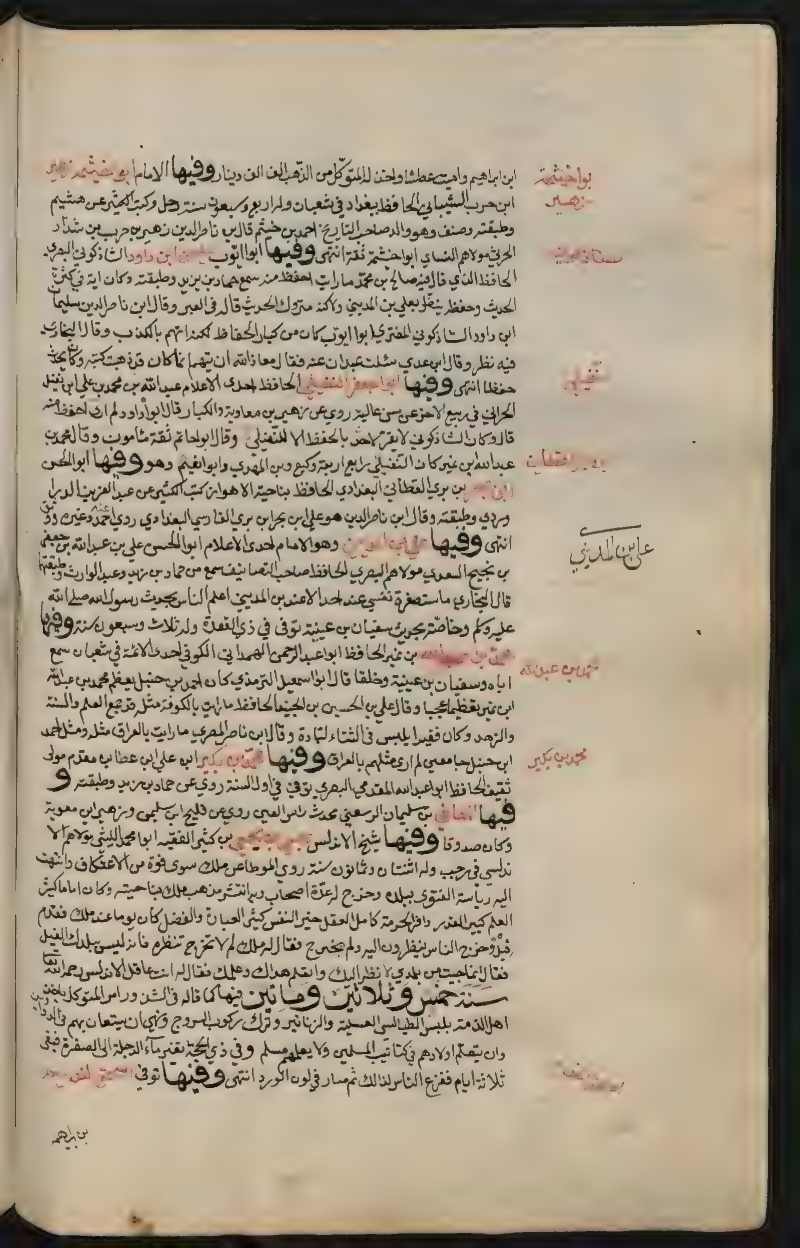 ابن ابراهيم وامتدت عطشا واخذ للمتوكل من الذهب الف الف دينار وفيها الامام ابو خيثمة زهير
ابن حرب الشيباني الحافظ ببغداد في شعبان وله اربع وسبعون سنة رحل وكتب الكثير عن هشيم
وطبقته وصنف وهو والد صاحب التاريخ احمد بن خيثم قال بن ناصر الدين زهير بن حرب بن شداد
الحرشي مولاهم النسائي ابو خيثمة ثقة انتهى وفيها ابو ايوب سليمن ابن داود الشاذكوني البصري
الحافظ الذي قال فيه صالح بن محمد ما رايت احفظ منه سمع حماد بن يزيد وطبقته وكان اية في كثرة
الحديث وحفظه ينظر بعلي بن المديني ولكنه متروك الحديث قاله في العبر وقال ابن ناصر الدين سليمان
ابن داود الشاذكوني المنقري ابو ايوب كان من كبار الحفاظ لكنه اتهم بالكذب وقال البخاري
فيه نظر وقال ابن عدي سئلت عبدان عنه فقال معاذ الله ان يتهم انما كان قد ذهبت كتبه وكان يحدث
حفظا انتهى وفيها ابو جعفر النفيلي الحافظ احدى الاعلام عبد الله بن محمد بن علي ابن نفيل
الحراني في ربيع الاخر عن سن عالية روى عن زهير بن معاوية والكبار قال ابو داود لم ار احفظ منه
قال وكان الشاذكوني لا يقر لاحد بالحفظ الا للنفيلي وقال ابو حاتم ثقة مامون وقال محمد بن
عبد الله ابن نمير كان النفيلي رابع اربعة وكيع وبن المهدي وابو نعيم وهو وفيها ابو الحسن
ابن بحر بن بري القطاني البغدادي الحافظ بناحية الاهواز كتب الكثير عن عبد العزيز الدرا
وردي وطبقته وقال ابن ناصر الدين هو علي ابن بحر ابن بري الفارسي البغدادي روى عنه احمد وغيره
انتهى وفيها علي ابن المديني وهو الامام احدى الاعلام ابو الحسن علي بن عبد الله بن جعفر
بن نجيح السعدي مولاهم البصري الحافظ صاحب التصانيف سمع من حماد بن زيد وعبد الوارث وطبقتهما
قال البخاري ما استصغرت نفسي عند احد الا عند بن المديني اعلم الناس بحديث رسول الله صلى الله
عليه وسلم وخاصة بحديث سفيان بن عيينة توفى في ذي القعدة وله ثلاث وسبعون سنة وفيها
محمد بن عبد الله بن نمير الحافظ ابو عبد الرحمن الهمداني الكوفي احدى الائمة في شعبان سمع
اباه وسفيان بن عيينة وخلقا قال ابو اسمعيل الترمذي كان احمد بن حنبل يعظم محمد بن عبد الله
ابن نمير تعظيما عجبا وقال علي بن الحسين بن الجنيد الحافظ ما رايت بالكوفة مثله قد جمع العلم والسنة
والزهد وكان فقيرا يلبس في الشتاء لبادة وقال ابن ناصر المصري ما رايت بالعراق مثله ومثل احمد
ابن حنبل جامعين لم ار مثلهم بالعراق وفيها محمد بن بكير ابن علي ابن عطا بن مقدم مولى
ثقيف الحافظ ابو عبد الله المقدمي البصري توفى في اول السنة روى عن حماد بن زيد وطبقته و
فيها المعافى بن سليمان الرسعني محدث راس العين روى عن فليح ابن سليمن وزهير ابن معوية
وكان صدوقا وفيها شيخ الاندلس يحيى بن يحيى بن كثير الفقيه ابو محمد الليثي مولاهم الا
ندلسي في رجب وله اثنتان وثمانون سنة روى الموطا عن ملك سوى فوة من الاعتكاف وانتهت
اليه رياسة الفتوى ببلده وخرج له عدة اصحاب وبه انتشر مذهب ملك بناحيته وكان اماما كثير
العلم كبير القدر وافر الحرمة كامل العقل خير النفس كثير العبادة والفضل كان يوما عند ملك فقدم
فيل وخرج الناس ينظرون اليه ولم يخرج فقال له ملك لم لا تخرج تنظره فانه ليس ببلدك الفيل
فقال انما جيت من بلدي لانظر اليك واتعلم هداك وعلمك فقال له انت عاقل الاندلس رحمه الله تعا
سنة خمس وثلاثين ومايتين فيها كما قاله في الشذور امر المتوكل باخذ
اهل الذمة بلبس الطيالسي العسلية والزنانير وترك ركوب السروج ونهى ان يستعان بهم في الدواوين
وان يتعلم اولادهم في كتاتيب المسلمين ولا يعلمهم مسلم وفي ذي الحجة تغير ماء الدجلة الى الصفرة فبقى
ثلاثة ايام ففزع الناس لذالك ثم صار في لون الورد انتهى وفيها توفى اسحق
بن ابراهيم
بو اخيثمة
زهير
النفيلي
علي ابن المديني
محمد بن عبد الله
محمد بن بكير